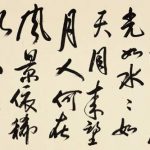 光如水〻如
天同来望
月人何在
風景依稀